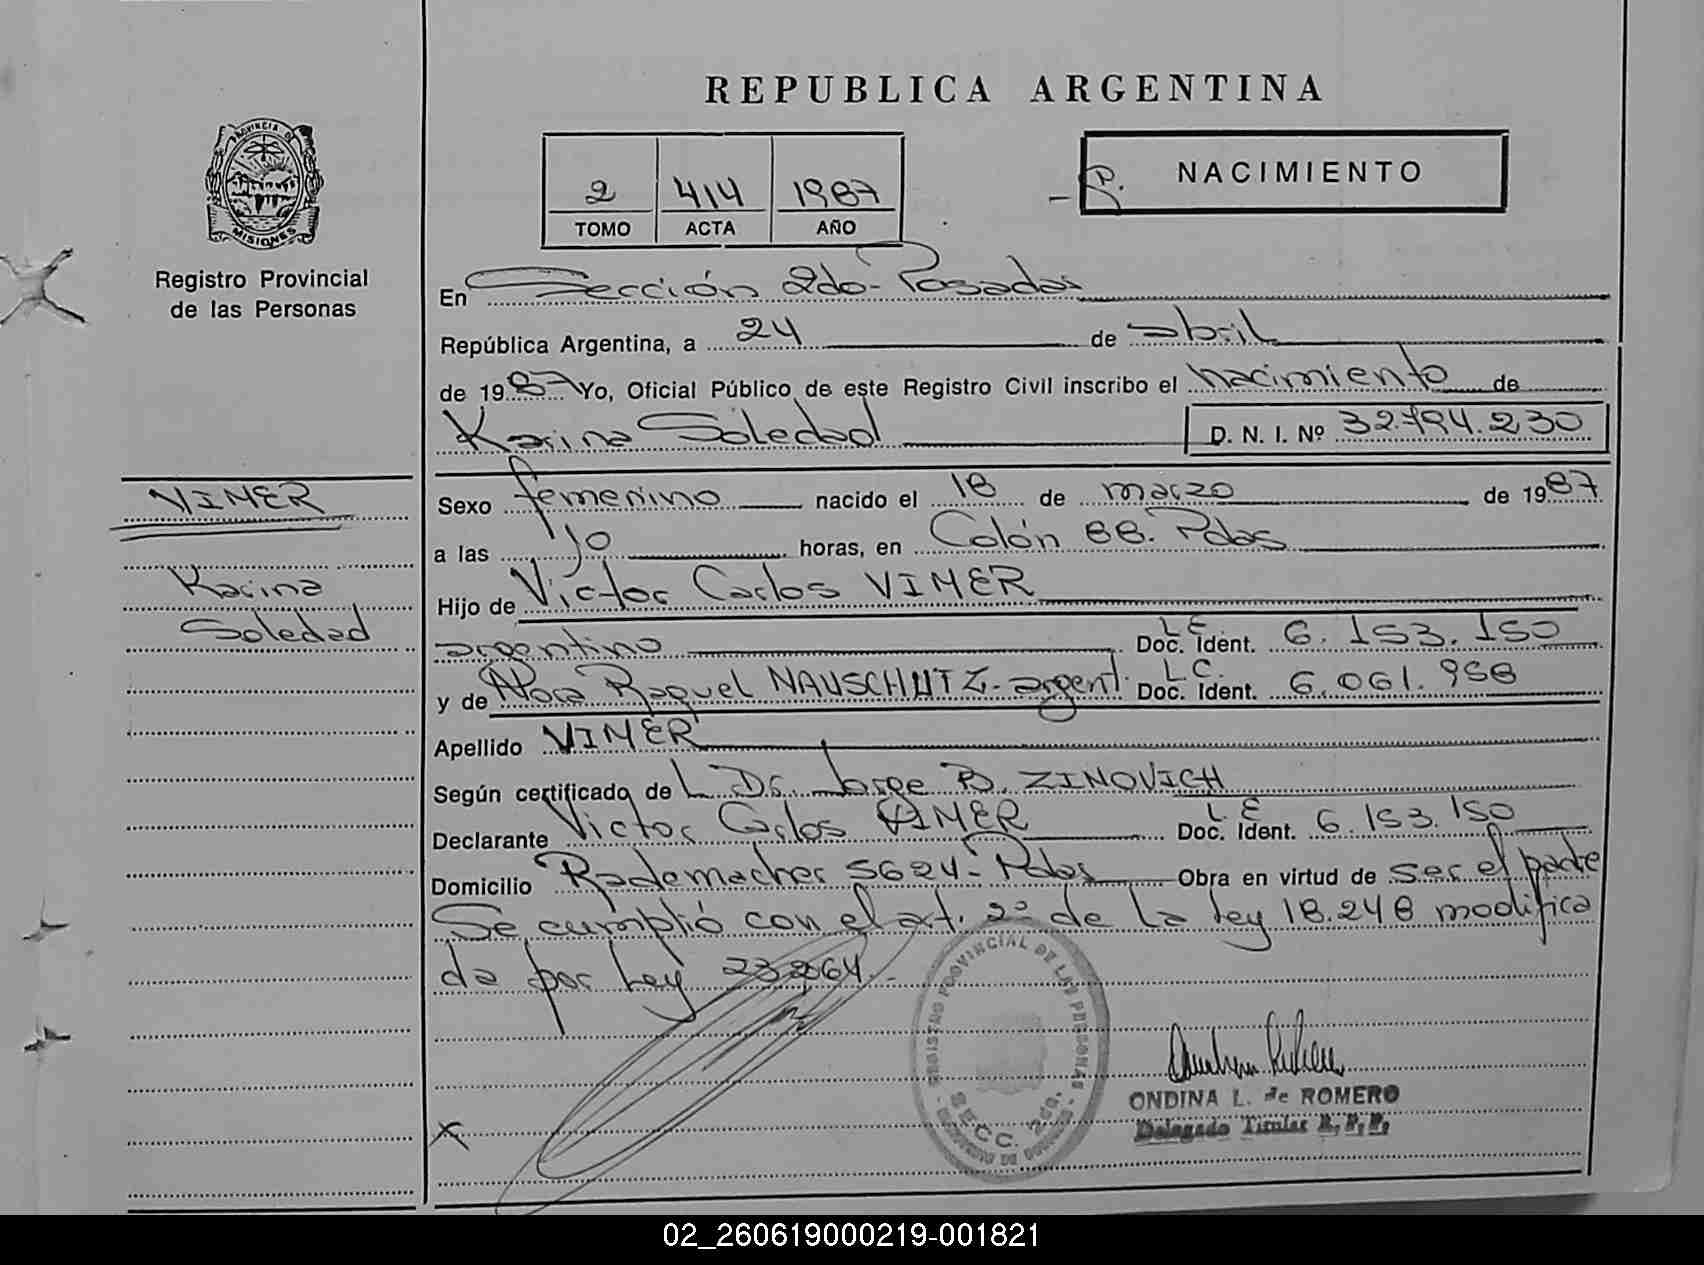 REPUBLICA ARGENTINA
PROVINCIA DE
MISIONES
Registro Provincial
de las Personas
2 414 1987
TOMO ACTA AÑO
NACIMIENTO
En Sección 2do - Posadas
República Argentina, a 24 de abril
de 1987 Yo, Oficial Público de este Registro Civil inscribo el nacimiento de
Karina Soledad D. N. I. Nº 32.794.230
VIMER
Karina
Soledad
Sexo femenino nacido el 18 de marzo de 1987
a las 10 horas, en Colón 88. Pdas
Hijo de Victor Carlos VIMER
argentino L E Doc. Ident. 6.153.150
y de Nora Raquel NAUSCHUTZ - argent. L C. Doc. Ident. 6.061.958
Apellido VIMER
Según certificado de L Dr. Jorge B. ZINOVICH
Declarante Victor Carlos VIMER L E Doc. Ident. 6.153.150
Domicilio Rademacher 5624 - Pdas Obra en virtud de ser el padre
Se cumplió con el art. 2º de la Ley 18.248 modifica
da por Ley 23.264.
REGISTRO PROVINCIAL DE LAS PERSONAS
SECC. 2da.
ONDINA L. de ROMERO
Delegado Titular R. P. P.
02_260619000219-001821